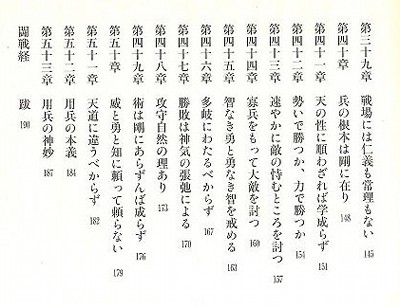 第三十九章 戦場には仁義も常理もない 145
第四十章 兵の根本は剛に在り 148
第四十一章 天の性に順わざれば学成らず 151
第四十二章 勢いで勝つか、力で勝つか 154
第四十三章 速やかに敵の恃むところを討つ 157
第四十四章 寡兵をもって大敵を討つ 160
第四十五章 智なき勇と勇なき智を戒める 163
第四十六章 多岐にわたるべからず 167
第四十七章 勝敗は神気の張弛による 170
第四十八章 攻守自然の理あり 173
第四十九章 術は剛にあらずんば成らず 176
第五十章 威と勇と知に頼って頼らない 179
第五十一章 天道に違うべからず 182
第五十二章 用兵の本義 184
第五十三章 用兵の神妙 187
闘戦経 跋 190